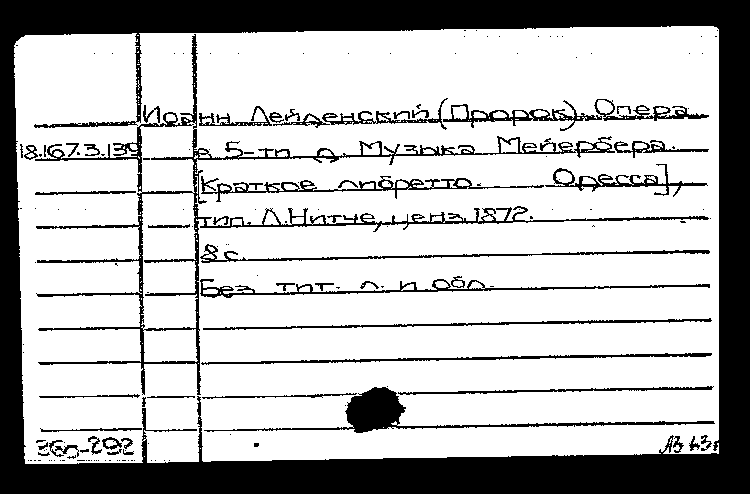 Иоанн Лейденский (Пророк). Опера
18.167.3.139 в 5-ти д. Музыка Мейербера.
[Краткое либретто. Одесса],
тип. Л. Нитче, ценз. 1872.
8 с.
Без тит. л. и обл.
360-292